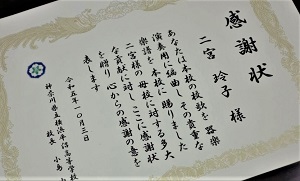 感謝状
二宮 玲子 様
あなたは本校の校歌を器楽
演奏用に編曲しその貴重な
楽譜を本校に賜りました
二宮様の母校に対する多大
な貢献に対しここに感謝状
を贈り心からの感謝の意を
表します
令和五年一〇月三日
神奈川県立横浜平沼高等学校
校長 小島